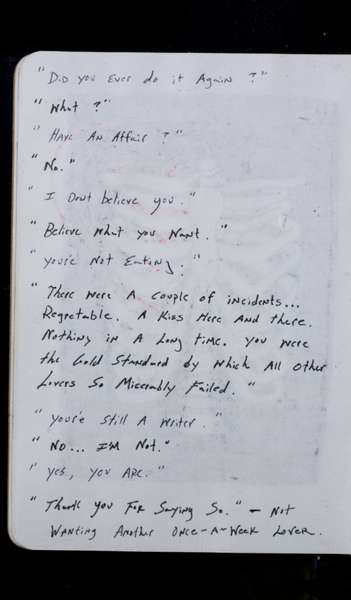 "Did you ever do it again ?"
"What ?"
"Have An Affair ?"
"No."
"I Dont believe you."
"Believe what you Want."
"you're Not Eating."
"There were A couple of incidents...
Regretable. A Kiss Here And there.
Nothing in A Long time. You were
the Gold Standard by which All Other
Lovers So Miserably Failed."
"you're Still A writer."
"NO... I'M Not."
"yes, you Are."
"Thank you For Saying So." — Not
WANTING Another Once-A-Week Lover.